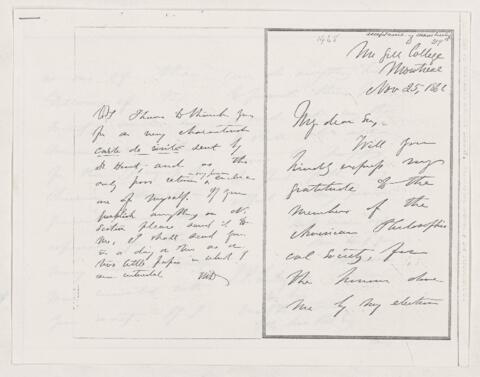 P.S. I have to thank you
for a very characteristic
carte de visite sent by
Dr Hunt, and as the
only poor return in my power enclose
one of myself. If you
publish anything on
Section please send it to
me, I shall send you
in a day or two a
two little papers in which I
am interested

1862
acceptance of membership
McGill College
Montreal
Nov 25, 1862
My dear Sir,
Will you
kindly express my
gratitude to the
members of the
American Philosophi
cal Society, for
the honour done
me by my election